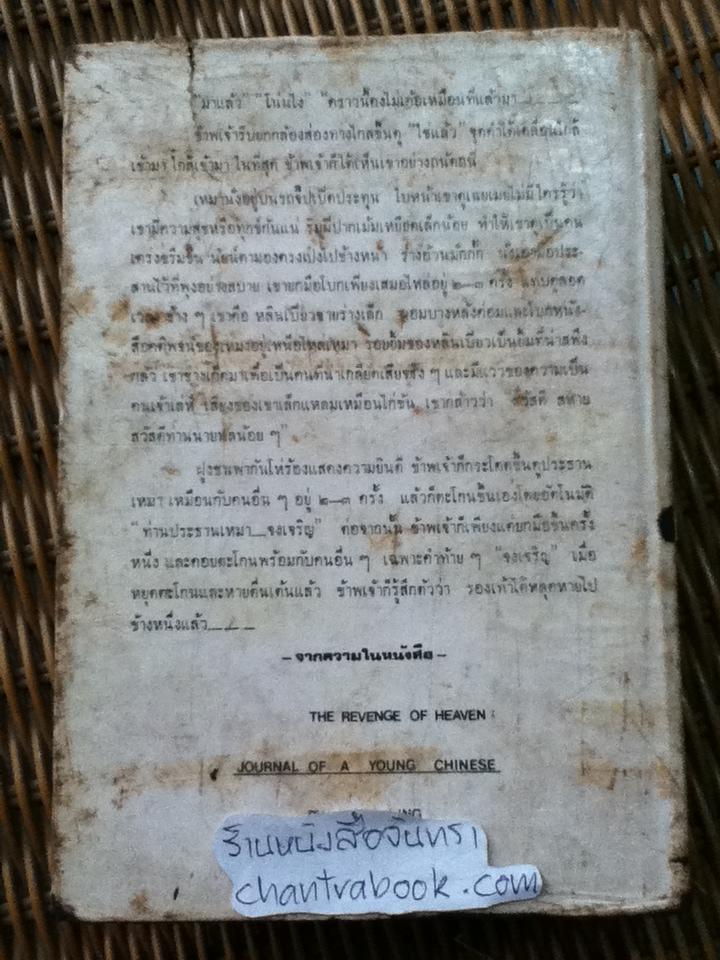 "มาแล้ว" "โน่นไง" "คราวนี้คงไม่เก้อเหมือนที่แล้วมา
ข้าพเจ้ารีบยกกล้องส่องทางไกลขึ้นดู "ใช่แล้ว" จุดดำได้เคลื่อนใกล้
เข้ามา ใกล้เข้ามา ในที่สุด ข้าพเจ้าก็ได้เห็นเขาอย่างถนัดถนี่
เหมานั่งอยู่บนรถจี๊ปเปิดประทุน ใบหน้าเขาดูเฉยเมยไม่มีใครรู้ว่า
เขามีความสุขหรือทุกข์กันแน่ ริมฝีปากเม้มเหยียดเล็กน้อย ทำให้เขาดูเป็นคน
เคร่งขรึมขึ้น นัยน์ตามองตรงเป๋งไปข้างหน้า ร่างอ้วนมักกั๊ก นั่งเอามือประ-
สานไว้ที่พุงอย่างสบาย เขายกมือโบกเพียงเสมอไหล่อยู่ ๒—๓ ครั้ง แทบตลอด
เวลา ข้าง ๆ เขาคือ หลินเปียวชายร่างเล็ก ผอมบางหลังค่อมและโบกหนัง-
สือคติพจน์ของเหมาอยู่เหนือไหล่เหมา รอยยิ้มของหลินเปียวเป็นยิ้มที่น่าสพึง
กลัว เขาช่างเกิดมาเพื่อเป็นคนที่น่าเกลียดเสียจริง ๆ และมีแววของความเป็น
คนเจ้าเล่ห์ เสียงของเขาเล็กแหลมเหมือนไก่ขัน เขากล่าวว่า สวัสดี สหาย
สวัสดีท่านนายพลน้อย ๆ"
ฝูงชนพากันโห่ร้องแสดงความยินดี ข้าพเจ้าก็กระโดดขึ้นดูประธาน
เหมา เหมือนกับคนอื่น ๆ อยู่ ๒—๓ ครั้ง แล้วก็ตะโกนขึ้นเองโดยอัตโนมัติ
"ท่านประธานเหมา__จงเจริญ" ต่อจากนั้น ข้าพเจ้าก็เพียงแค่ยกมือขึ้นครั้ง
หนึ่ง และคอยตะโกนพร้อมกับคนอื่น ๆ เฉพาะคำท้าย ๆ "จงเจริญ" เมื่อ
หยุดตะโกนและหายตื่นเต้นแล้ว ข้าพเจ้าก็รู้สึกตัวว่า รองเท้าได้หลุดหายไป
ข้างหนึ่งแล้ว
–จากความในหนังสือ–
THE REVENGE OF HEAVEN :
JOURNAL OF A YOUNG CHINESE
ร้านหนังสือจันทรา
chantrabook.com